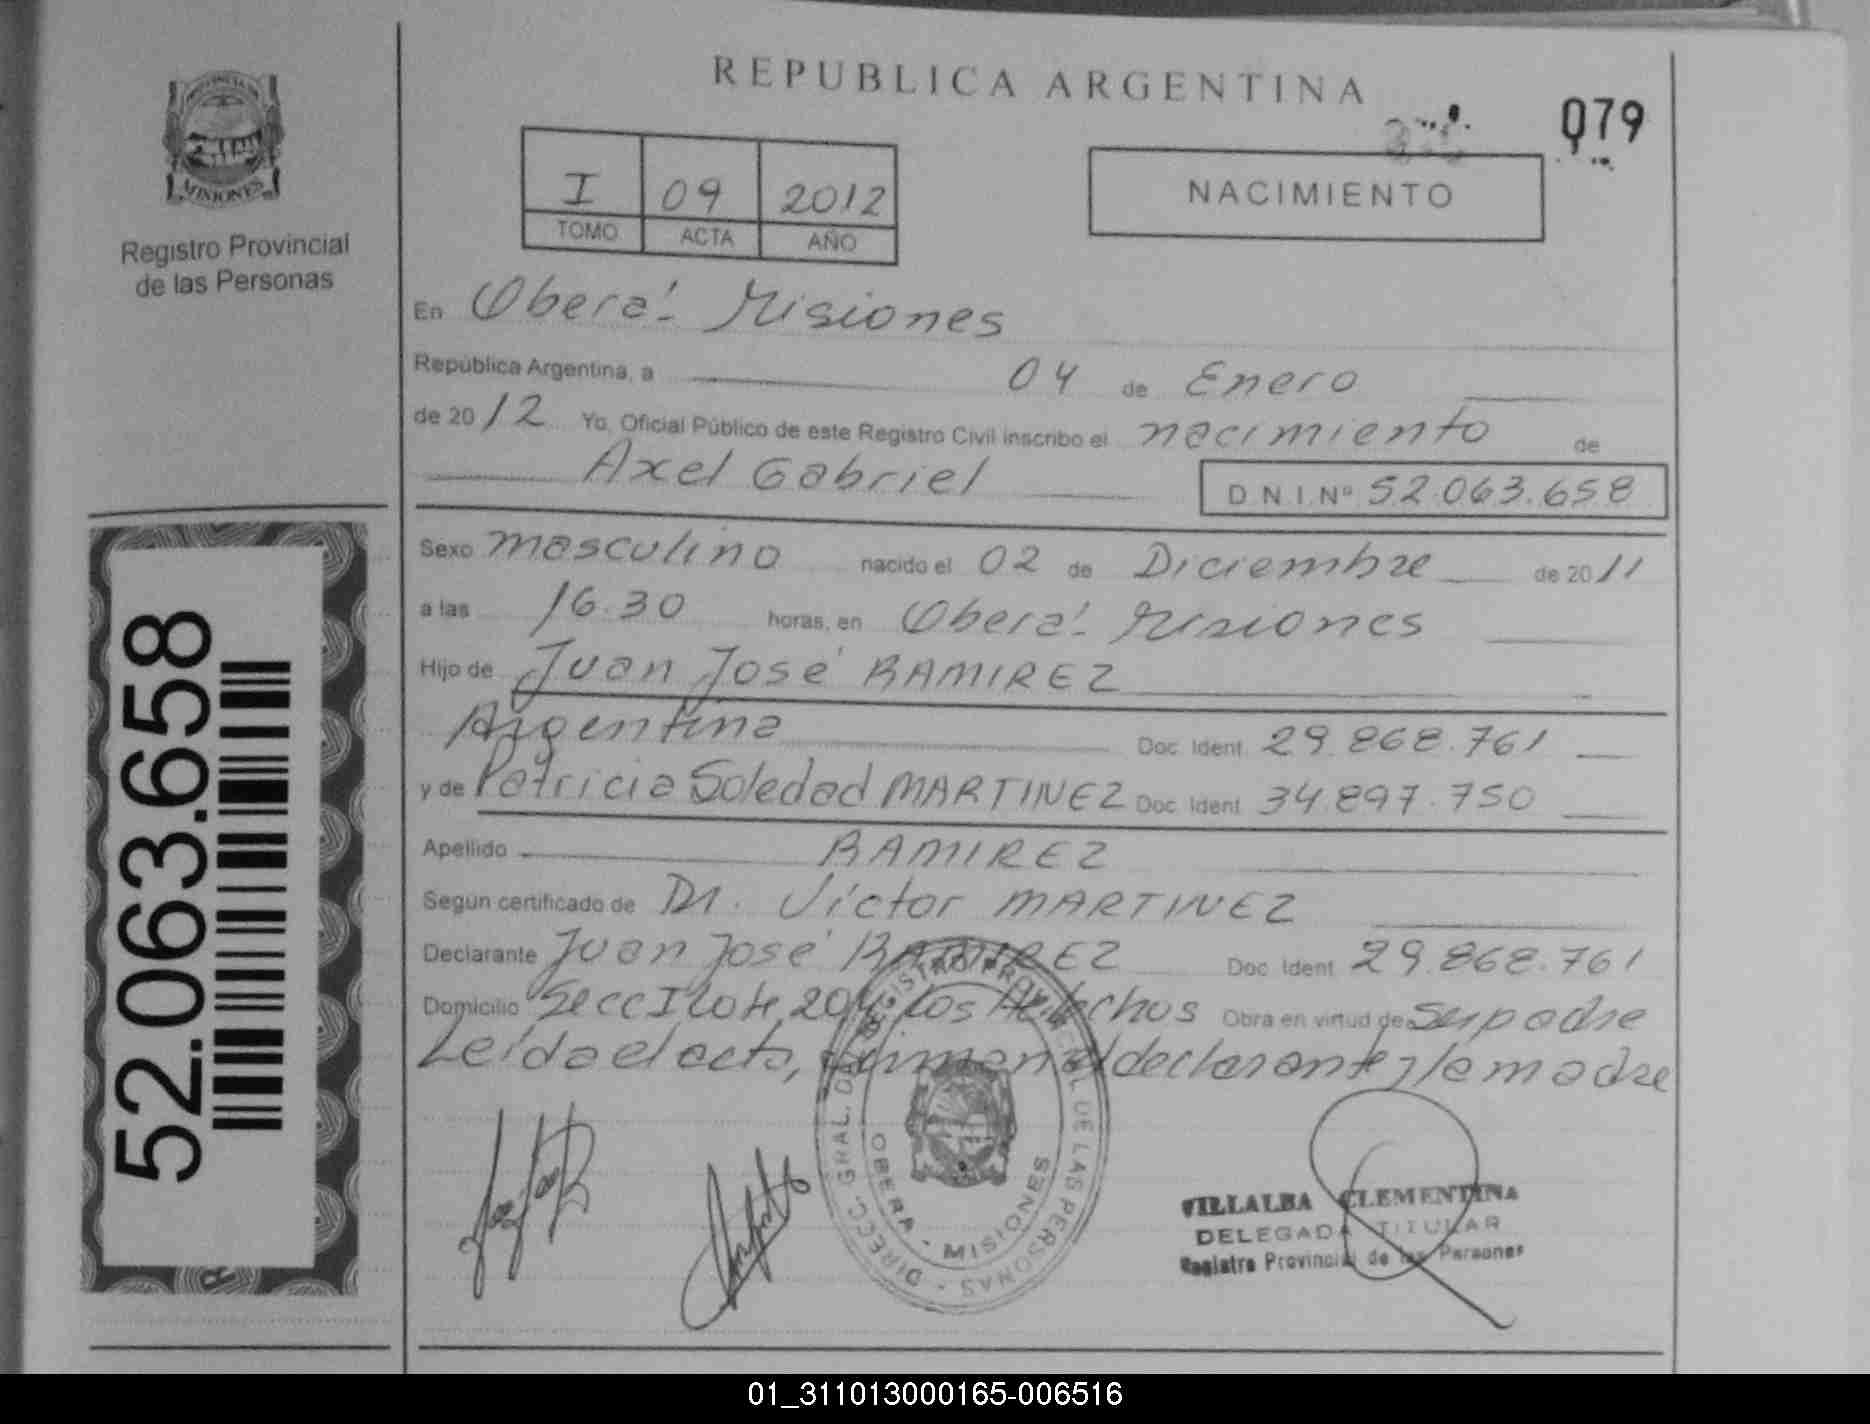 REPUBLICA ARGENTINA
079
MISIONES
Registro Provincial
de las Personas
I 09 2012
TOMO ACTA AÑO
NACIMIENTO
En Oberá - Misiones
República Argentina, a 04 de Enero
de 2012 Yo, Oficial Público de este Registro Civil inscribo el nacimiento de
Axel Gabriel D.N.I.Nº 52.063.658
Sexo masculino nacido el 02 de Diciembre de 2011
a las 16.30 horas, en Oberá - Misiones
Hijo de Juan José RAMIREZ
Argentina Doc. Ident. 29.868.761
y de Patricia Soledad MARTINEZ Doc. Ident. 34.897.750
Apellido RAMIREZ
Según certificado de Dr. Víctor MARTINEZ
Declarante Juan José RAMIREZ Doc. Ident. 29.868.761
Domicilio Secc I lote 204 Los Helechos Obra en virtud de ser padre
Leída el acta, firman el declarante y la madre
52.063.658
DIRECC. GRAL. DEL REGISTRO PROVINCIAL DE LAS PERSONAS -
OBERA - MISIONES
VILLALBA CLEMENTINA
DELEGADA TITULAR
Registro Provincial de las Personas
01_311013000165-006516